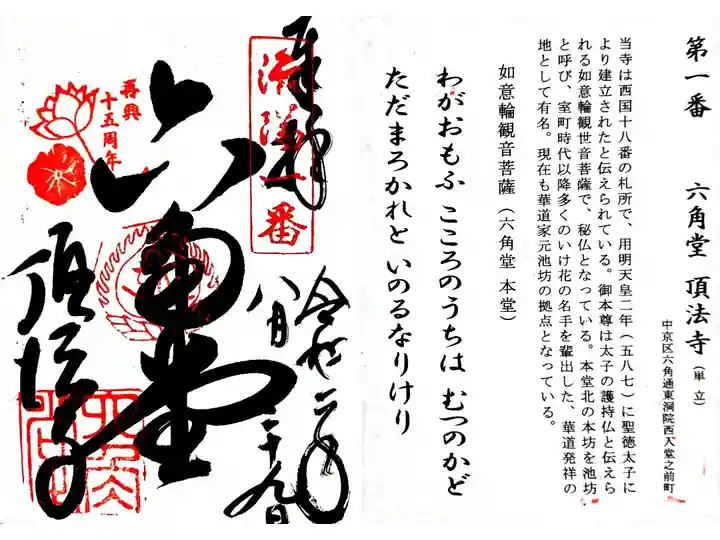 第一番 六角堂 頂法寺（単立）
中京区六角通東洞院西入堂之前町
当寺は西国十八番の札所で、用明天皇二年（五八七）に聖徳太子に
より建立されたと伝えられている。御本尊は太子の護持仏と伝えら
れる如意輪観世音菩薩で、秘仏となっている。本堂北の本坊を池坊
と呼び、室町時代以降多くのいけ花の名手を輩出した、華道発祥の
地として有名。現在も華道家元池坊の拠点となっている。
如意輪観音菩薩（六角堂 本堂）
わがおもふ こころのうちは むつのかど
ただまろかれと いのるなりけり
奉拝
洛陽一番
令和二年
八月二十九日
再興
十五周年
六角堂
頂法寺